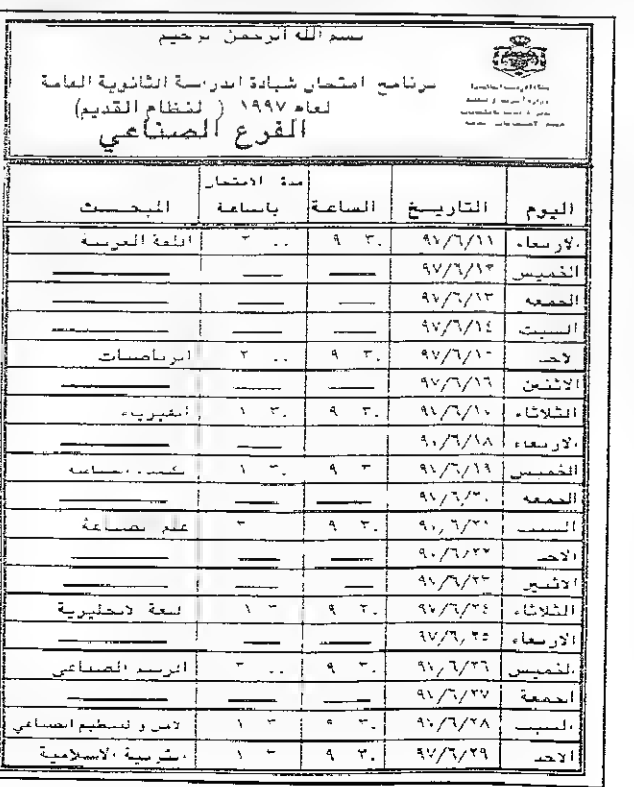 بسم الله الرحمن الرحيم
برنامج امتحان شهادة الدراسة الثانوية العامة
لعام ١٩٩٧ ( لنظام القديم)
الفرع الصناعي
اليوم التاريخ الساعة مدة الامتحان باساعة المبحث
الاربعاء ٩٧/٦/١١ ٩ ٣٠ ٢ ٠٠ اللغة العربية
الخميس ٩٧/٦/١٢
الجمعه ٩٧/٦/١٣
السبت ٩٧/٦/١٤
الاحد ٩٧/٦/١٥ ٩ ٣٠ ٢ ٠٠ الرياضيات
الاثنين ٩٧/٦/١٦
الثلاثاء ٩٧/٦/١٧ ٩ ٣٠ ١ ٣٠ الفيزياء
الاربعاء ٩٧/٦/١٨
الخميس ٩٧/٦/١٩ ٩ ٣ ١ ٣٠
الجمعه ٩٧/٦/٢٠
السبت ٩٧/٦/٢١ ٩ ٣٠ علم الصناعة
الاحد ٩٧/٦/٢٢
الاثنين ٩٧/٦/٢٣
الثلاثاء ٩٧/٦/٢٤ ٩ ٣٠ ١ ٣ اللغة الانجليزية
الاربعاء ٩٧/٦/٢٥
الخميس ٩٧/٦/٢٦ ٩ ٣٠ ٠٠ الرسم الصناعي
الجمعة ٩٧/٦/٢٧
السبت ٩٧/٦/٢٨ ٩ ٣٠ ١ ٣ الامن و التنظيم الصناعي
الاحد ٩٧/٦/٢٩ ٩ ٣٠ ١ ٣ التربية الاسلامية